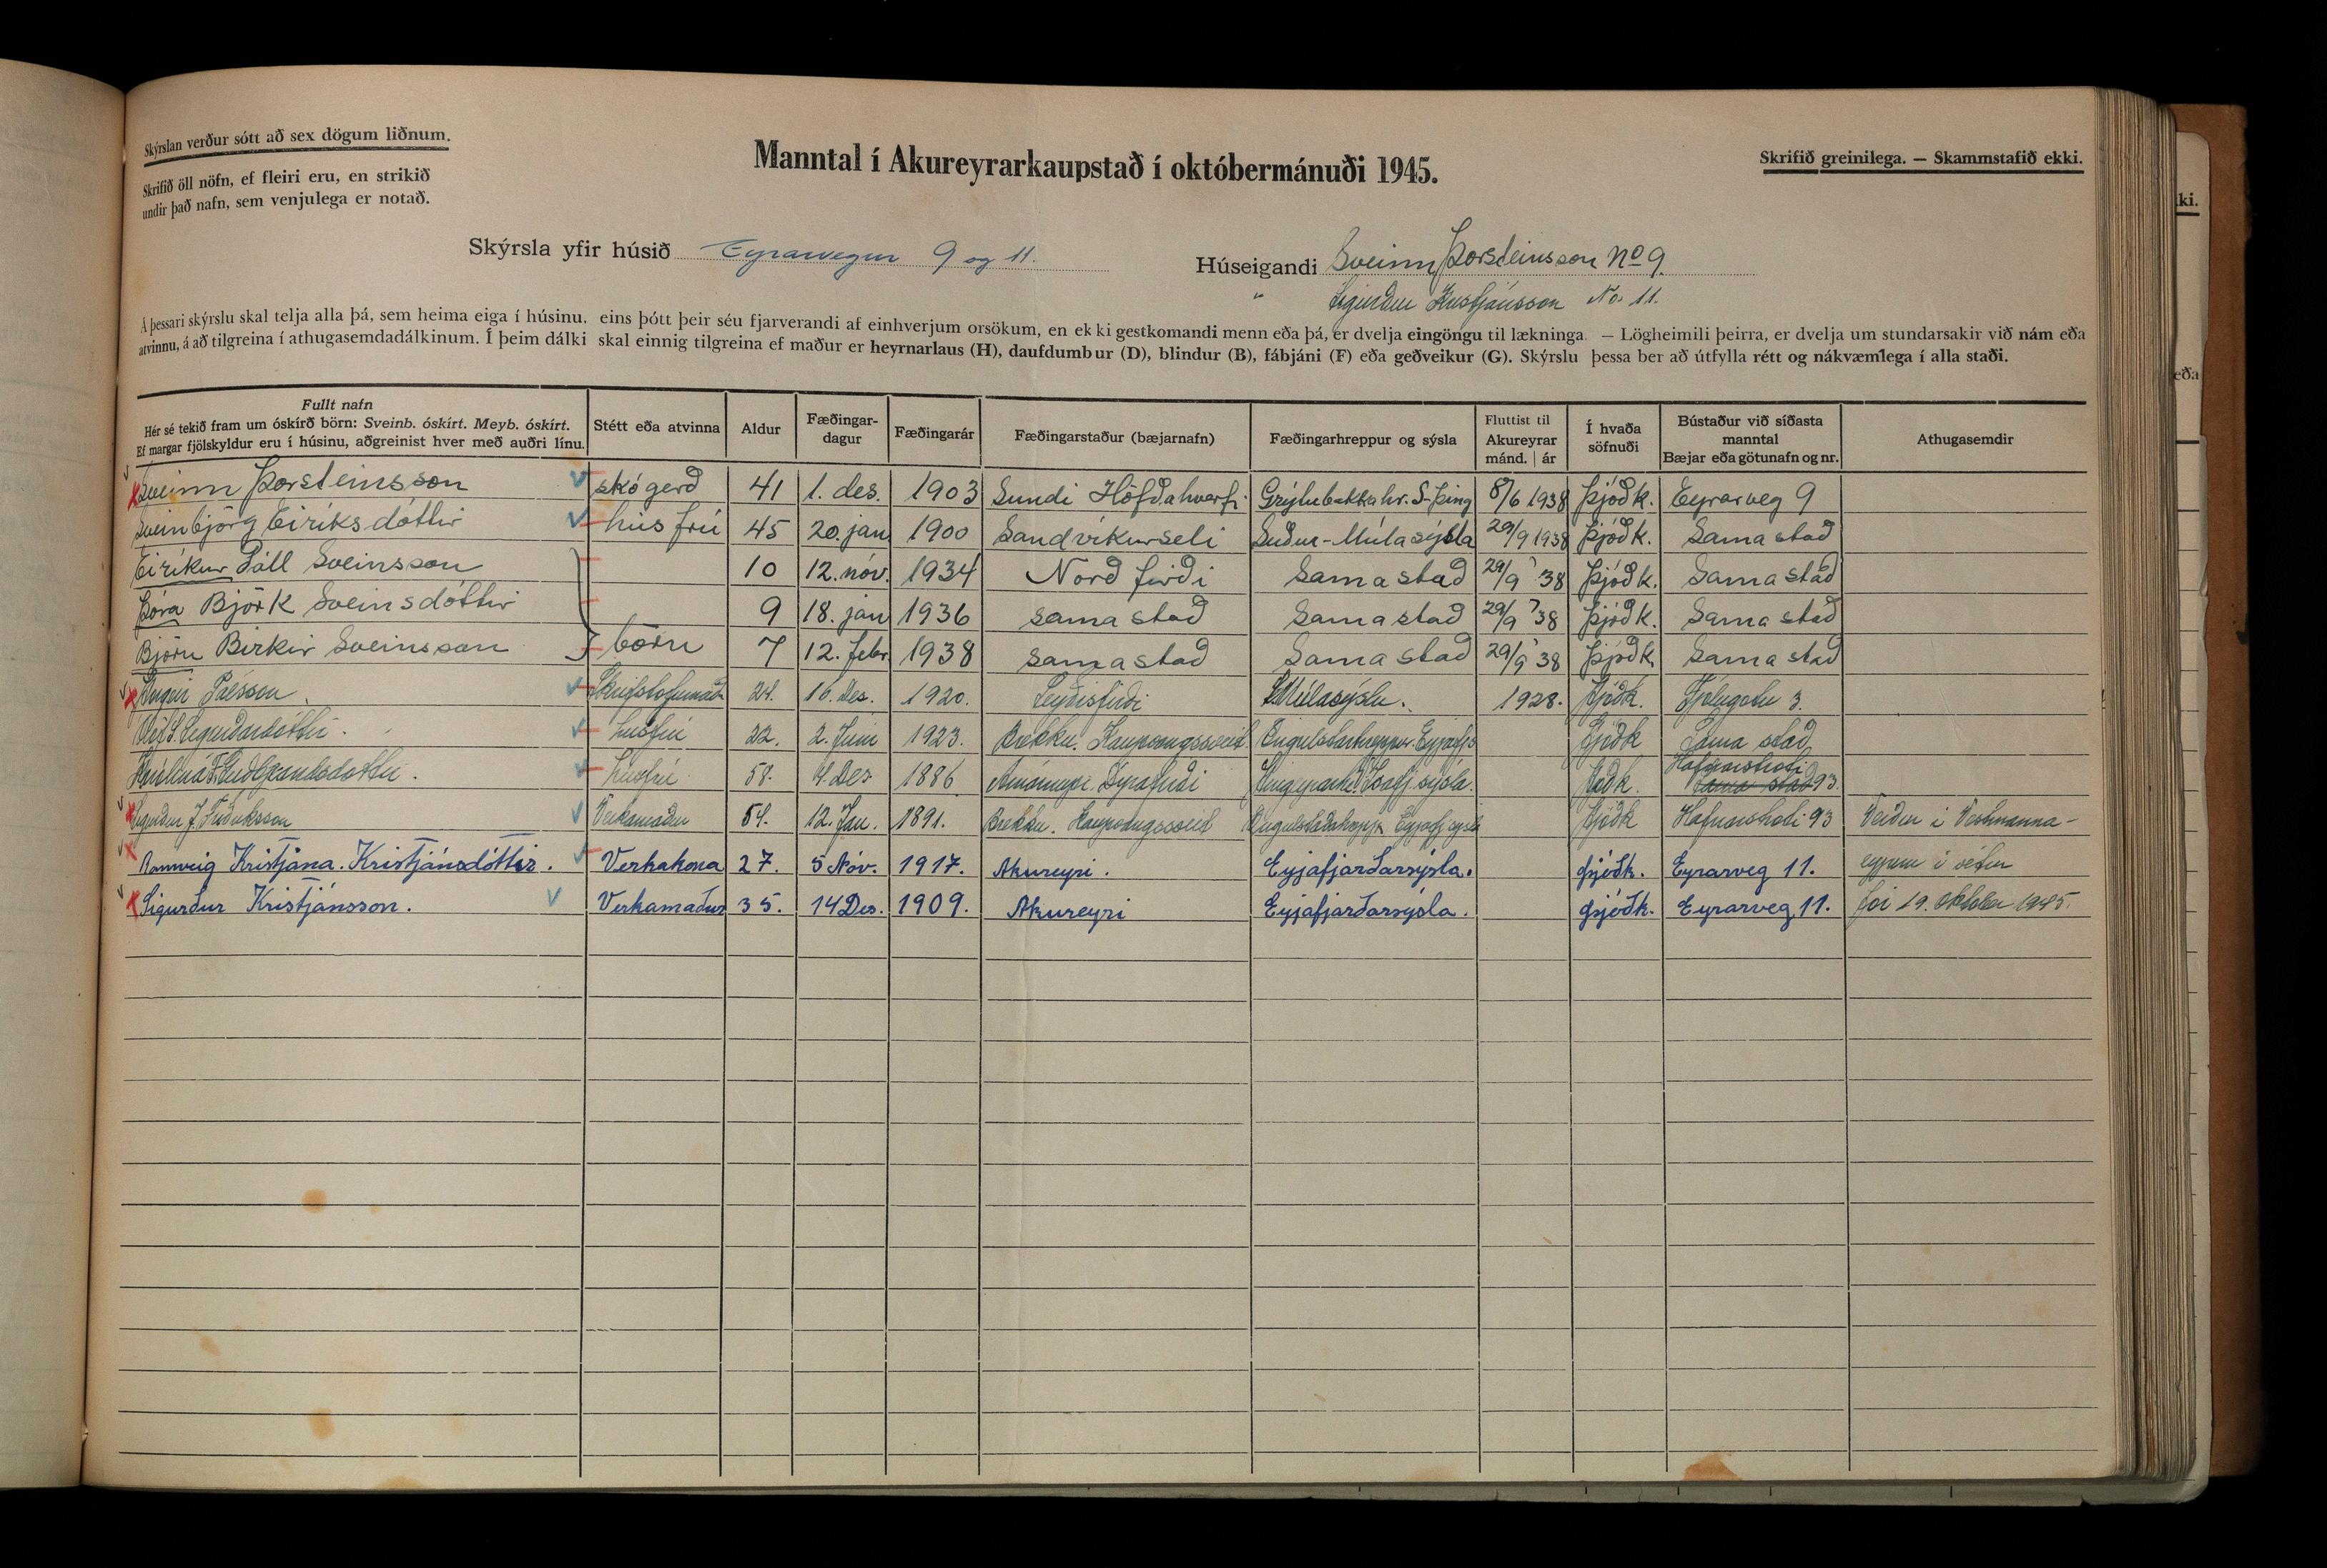 Skýrslan verður sótt að sex dögum liðnum.
Skrifið öll nöfn, ef fleiri eru, en strikið
undir það nafn, sem venjulega er notað.
Manntal í Akureyrarkaupstað í októbermánuði 1945.
Skrifið greinilega. — Skammstafið ekki.
Skýrsla yfir húsið Eyrarvegur 9 og 11.
Húseigandi Sveinn Þorsteinsson No 9.
" Sigurður Kristjánsson No. 11.
Á þessari skýrslu skal telja alla þá, sem heima eiga í húsinu, eins þótt þeir séu fjarverandi af einhverjum orsökum, en ekki gestkomandi menn eða þá, er dvelja eingöngu til lækninga. — Lögheimili þeirra, er dvelja um stundarsakir við nám eða
atvinnu, á að tilgreina í athugasemdadálkinum. Í þeim dálki skal einnig tilgreina ef maður er heyrnarlaus (H), daufdumbur (D), blindur (B), fábjáni (F) eða geðveikur (G). Skýrslu þessa ber að útfylla rétt og nákvæmlega í alla staði.
Fullt nafn
Hér sé tekið fram um óskírð börn: Sveinb. óskírt. Meyb. óskírt.
Ef margar fjölskyldur eru í húsinu, aðgreinist hver með auðri línu.
Stétt eða atvinna
Aldur
Fæðingar-
dagur
Fæðingarár
Fæðingarstaður (bæjarnafn)
Fæðingarhreppur og sýsla
Fluttist til
Akureyrar
mánd. | ár
Í hvaða
söfnuði
Bústaður við síðasta
manntal
Bæjar eða götunafn og nr.
Athugasemdir
Sveinn Þorsteinsson skógerð 41 1. des. 1903 Sundi Höfðahverfi Grýtubakkahr. S-Þing 8/6 1938 Þjóðk. Eyrarveg 9
Sveinbjörg Eiríksdóttir húsfrú 45 20. jan 1900 Sandvíkurseli Suður-Múlasýsla 29/9 1938 Þjóðk. Sama stað
Eiríkur Páll Sveinsson 10 12. nóv. 1934 Norðfirði Sama stað 29/9 '38 Þjóðk. Sama stað
Þóra Björk Sveinsdóttir 9 18. jan 1936 sama stað Sama stað 29/9 '38 Þjóðk. Sama stað
Björn Birkir Sveinsson börn 7 12. febr. 1938 sama stað Sama stað 29/9 '38 Þjóðk. Sama stað
Pálsson Skrifstofumaðr 24. 16. Des. 1920. Seyðisfirði Múlasýslu. 1928. Þjóðk. Fjólugötu 3.
Sigurðardóttir. húsfrú 22. 2. Júní 1923. Brekku. Kaupangssveit Öngulstaðahreppur. Eyjafjs Þjóðk Sama stað
húsfrú 58. 4. Des 1886 Dýrafirði Ísafj. sýsla. Þjóðk. Hafnarstræti
Sama stað 93.
Sigurður J. Friðriksson Verkamaður 54. 12. Jan. 1891. Brekku. Kaupangssveit Öngulstaðahrepp. Eyjafj sýsla Þjóðk Hafnarstræti 93 Verður í Vestmanna-
Rannveig Kristjana. Kristjánsdóttir. Verkakona 27. 5 Nóv. 1917. Akureyri. Eyjafjarðarsýsla. Þjóðk. Eyrarveg 11. eyjum í vetur
Sigurður Kristjánsson. Verkamaður 35. 14 Des. 1909. Akureyri Eyjafjarðarsýsla. Þjóðk. Eyrarveg 11. fór 19. október 1945.